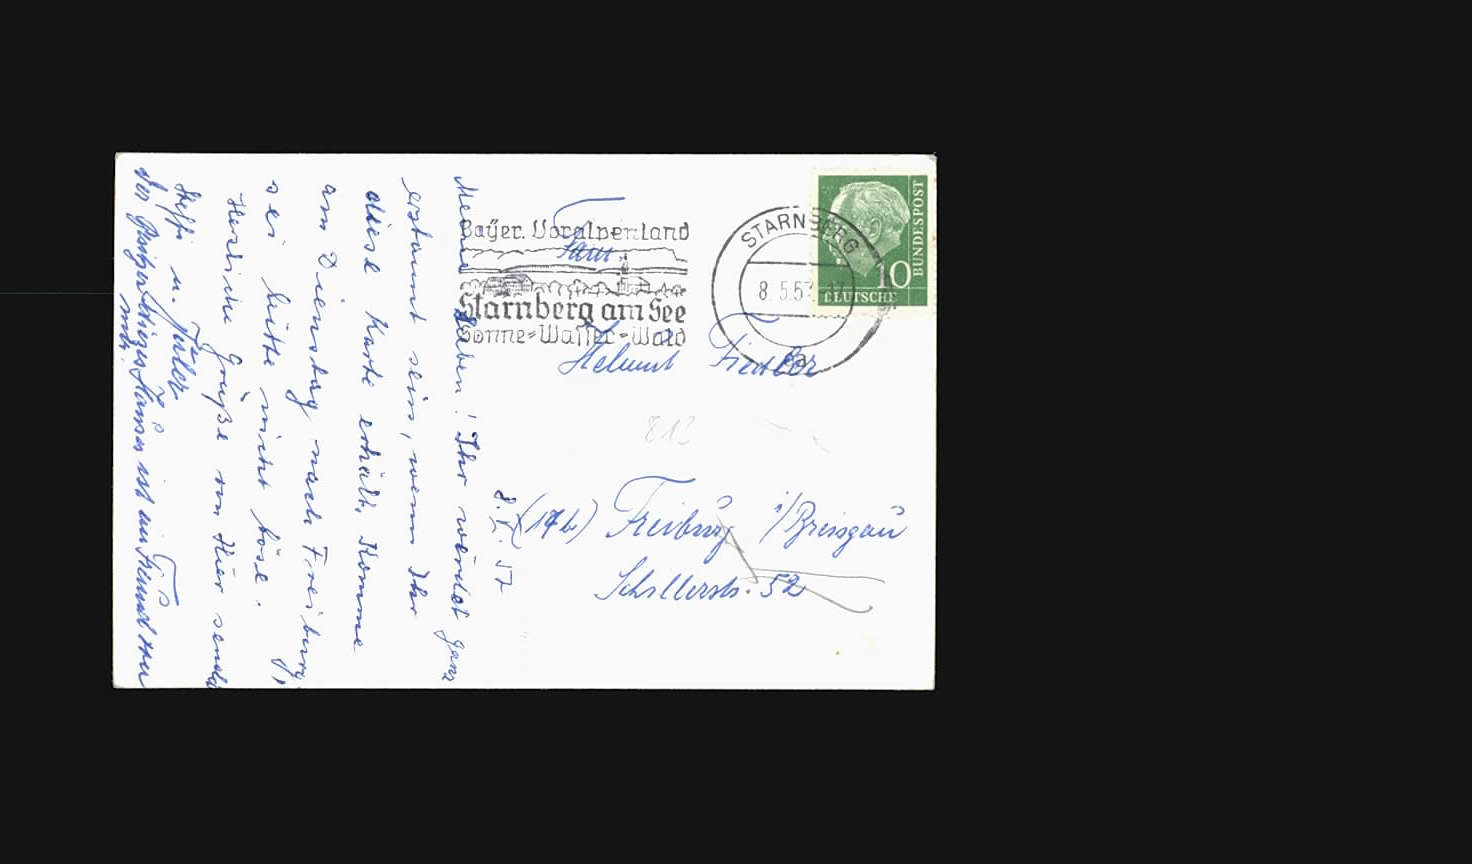 Bayer. Voralpenland
Starnberg am See
Sonne-Wasser-Wald
STARNBERG
8.5.57
a
10
DEUTSCHE
BUNDESPOST
Fam.
Helmut Fiedler
813
(17b) Freiburg i/Breisgau
Schillerstr. 52
8.5.57
Meine Lieben! Ihr werdet ganz
erstaunt sein, wenn Ihr
diese Karte erhält. Komme
am Dienstag nach Freiburg,
sei bitte nicht böse.
Herzliche Grüße von Hier sendet
Steffi u.
Der Besitzer Hauses ist ein Freund von
mir.